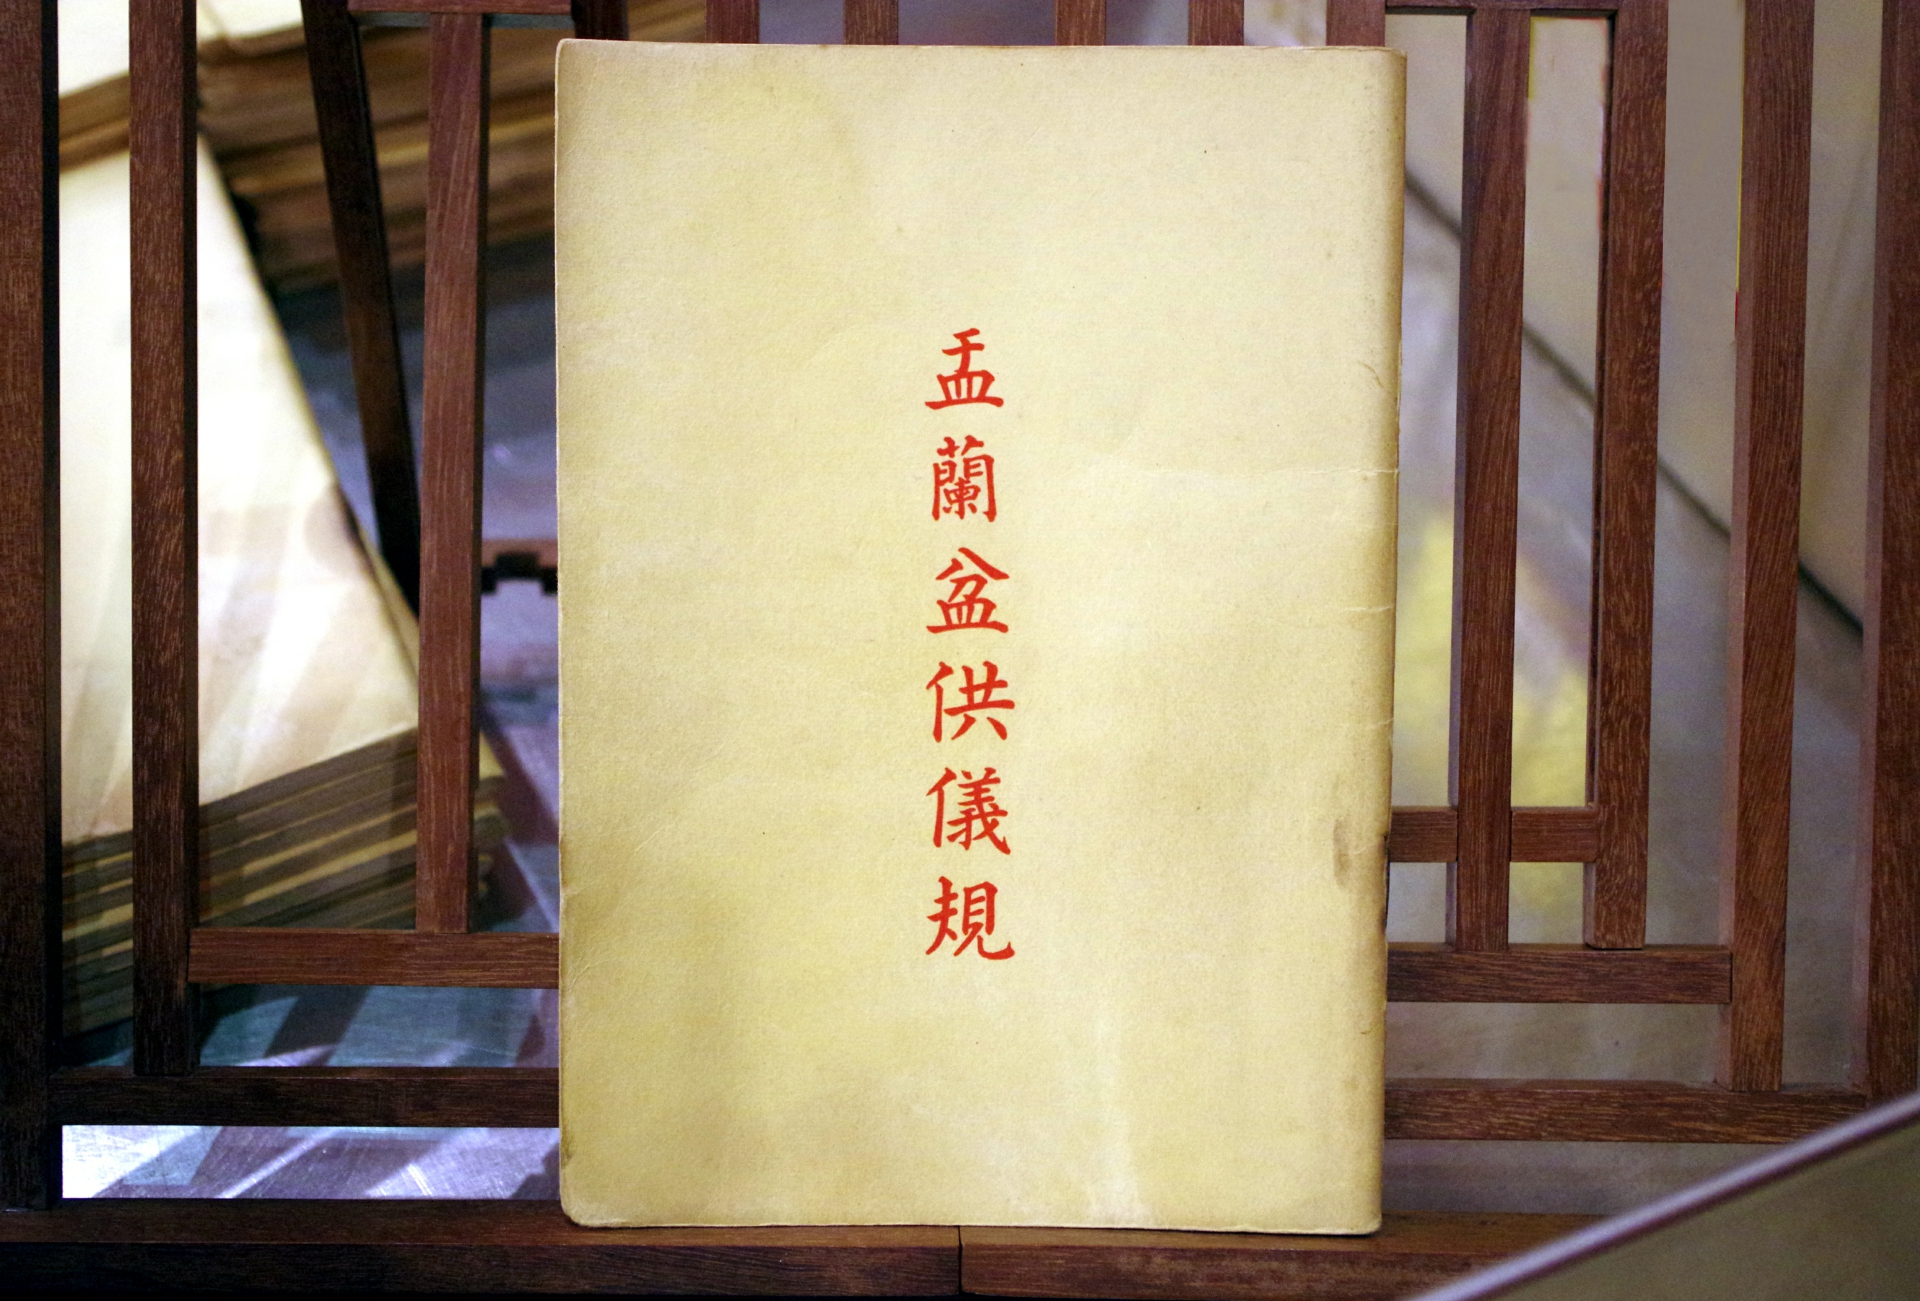 盂蘭盆供儀規